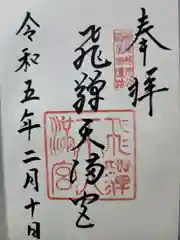 奉拝
飛騨天満宮
令和五年二月十日